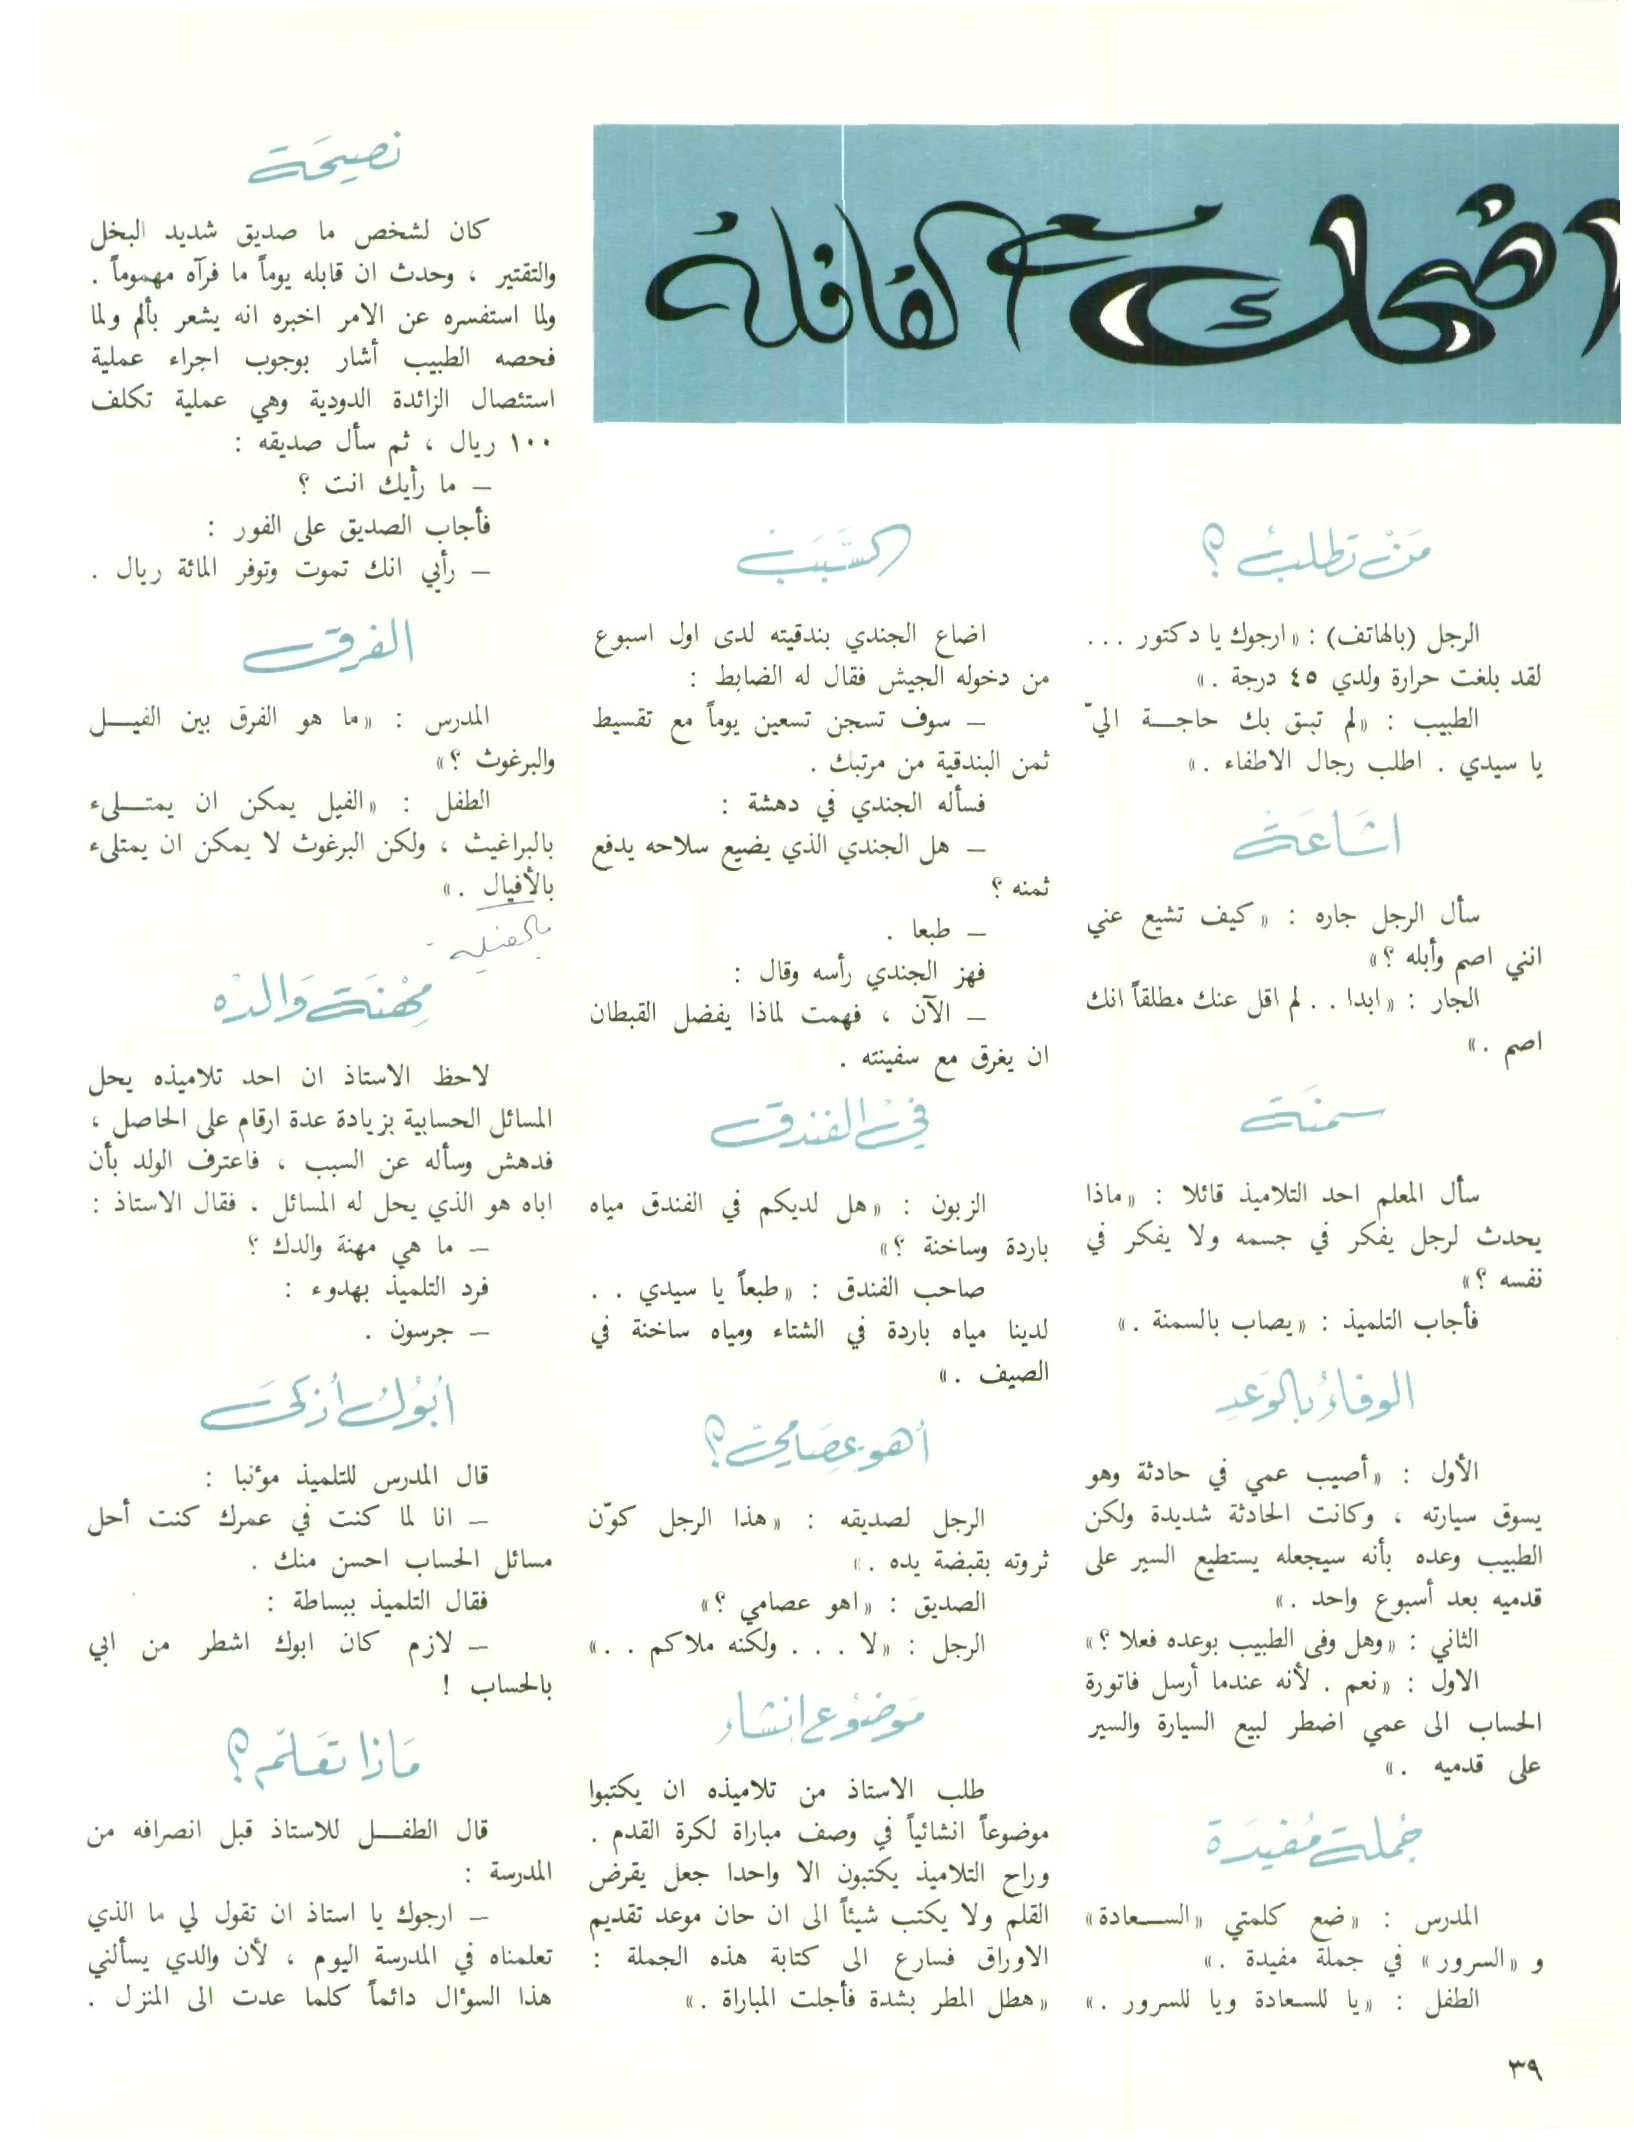 اضحك مع القافلة
من تطلب ؟
الرجل (بالهاتف) : «ارجوك يا دكتور . . .
لقد بلغت حرارة ولدي ٤٥ درجة .»
الطبيب : «لم تبق بك حاجــة اليّ
يا سيدي . اطلب رجال الاطفاء .»
اشاعة
سأل الرجل جاره : «كيف تشيع عني
انني اصم وأبله ؟»
الجار : «ابدا . . لم اقل عنك مطلقاً انك
اصم .»
سمنة
سأل المعلم احد التلاميذ قائلا : «ماذا
يحدث لرجل يفكر في جسمه ولا يفكر في
نفسه ؟»
فأجاب التلميذ : «يصاب بالسمنة .»
الوفاء بالوعد
الأول : «أصيب عمي في حادثة وهو
يسوق سيارته ، وكانت الحادثة شديدة ولكن
الطبيب وعده بأنه سيجعله يستطيع السير على
قدميه بعد أسبوع واحد .»
الثاني : «وهل وفى الطبيب بوعده فعلا ؟»
الاول : «نعم . لأنه عندما أرسل فاتورة
الحساب الى عمي اضطر لبيع السيارة والسير
على قدميه .»
جُملة مُفيدَة
المدرس : «ضع كلمتي «الســعادة»
و «السرور» في جملة مفيدة .»
الطفل : «يا للسعادة ويا للسرور .»
السَّبَب
اضاع الجندي بندقيته لدى اول اسبوع
من دخوله الجيش فقال له الضابط :
– سوف تسجن تسعين يوماً مع تقسيط
ثمن البندقية من مرتبك .
فسأله الجندي في دهشة :
– هل الجندي الذي يضيع سلاحه يدفع
ثمنه ؟
– طبعا .
فهز الجندي رأسه وقال :
– الآن ، فهمت لماذا يفضل القبطان
ان يغرق مع سفينته .
في الفندق
الزبون : «هل لديكم في الفندق مياه
باردة وساخنة ؟»
صاحب الفندق : «طبعاً يا سيدي . .
لدينا مياه باردة في الشتاء ومياه ساخنة في
الصيف .»
أهو عِصَامي ؟
الرجل لصديقه : «هذا الرجل كوّن
ثروته بقبضة يده .»
الصديق : «اهو عصامي ؟»
الرجل : «لا . . . ولكنه ملاكم . .»
مَوضوُع إنشاء
طلب الاستاذ من تلاميذه ان يكتبوا
موضوعاً انشائياً في وصف مباراة لكرة القدم .
وراح التلاميذ يكتبون الا واحدا جعل يقرض
القلم ولا يكتب شيئاً الى ان حان موعد تقديم
الاوراق فسارع الى كتابة هذه الجملة :
«هطل المطر بشدة فأجلت المباراة .»
نصيحَة
كان لشخص ما صديق شديد البخل
والتقتير ، وحدث ان قابله يوماً ما فرآه مهموماً .
ولما استفسره عن الامر اخبره انه يشعر بألم ولما
فحصه الطبيب أشار بوجوب اجراء عملية
استئصال الزائدة الدودية وهي عملية تكلف
١٠٠ ريال ، ثم سأل صديقه :
– ما رأيك انت ؟
فأجاب الصديق على الفور :
– رأبي انك تموت وتوفر المائة ريال .
الفرق
المدرس : «ما هو الفرق بين الفيــل
والبرغوث ؟»
الطفل : «الفيل يمكن ان يمتــلىء
بالبراغيث ، ولكن البرغوث لا يمكن ان يمتلىء
بالأفيال .»
مِهْنَة وَالدْه
لاحظ الاستاذ ان احد تلاميذه يحل
المسائل الحسابية بزيادة عدة ارقام على الحاصل ،
فدهش وسأله عن السبب ، فاعترف الولد بأن
اباه هو الذي يحل له المسائل . فقال الاستاذ :
– ما هي مهنة والدك ؟
فرد التلميذ بهدوء :
– جرسون .
أبُوك أذكى
قال المدرس للتلميذ مؤنبا :
– انا لما كنت في عمرك كنت أحل
مسائل الحساب احسن منك .
فقال التلميذ ببساطة :
– لازم كان ابوك اشطر من ابي
بالحساب !
مَاذا تعَلّم ؟
قال الطفــل للاستاذ قبل انصرافه من
المدرسة :
– ارجوك يا استاذ ان تقول لي ما الذي
تعلمناه في المدرسة اليوم ، لأن والدي يسألني
هذا السؤال دائماً كلما عدت الى المنزل .
٣٩